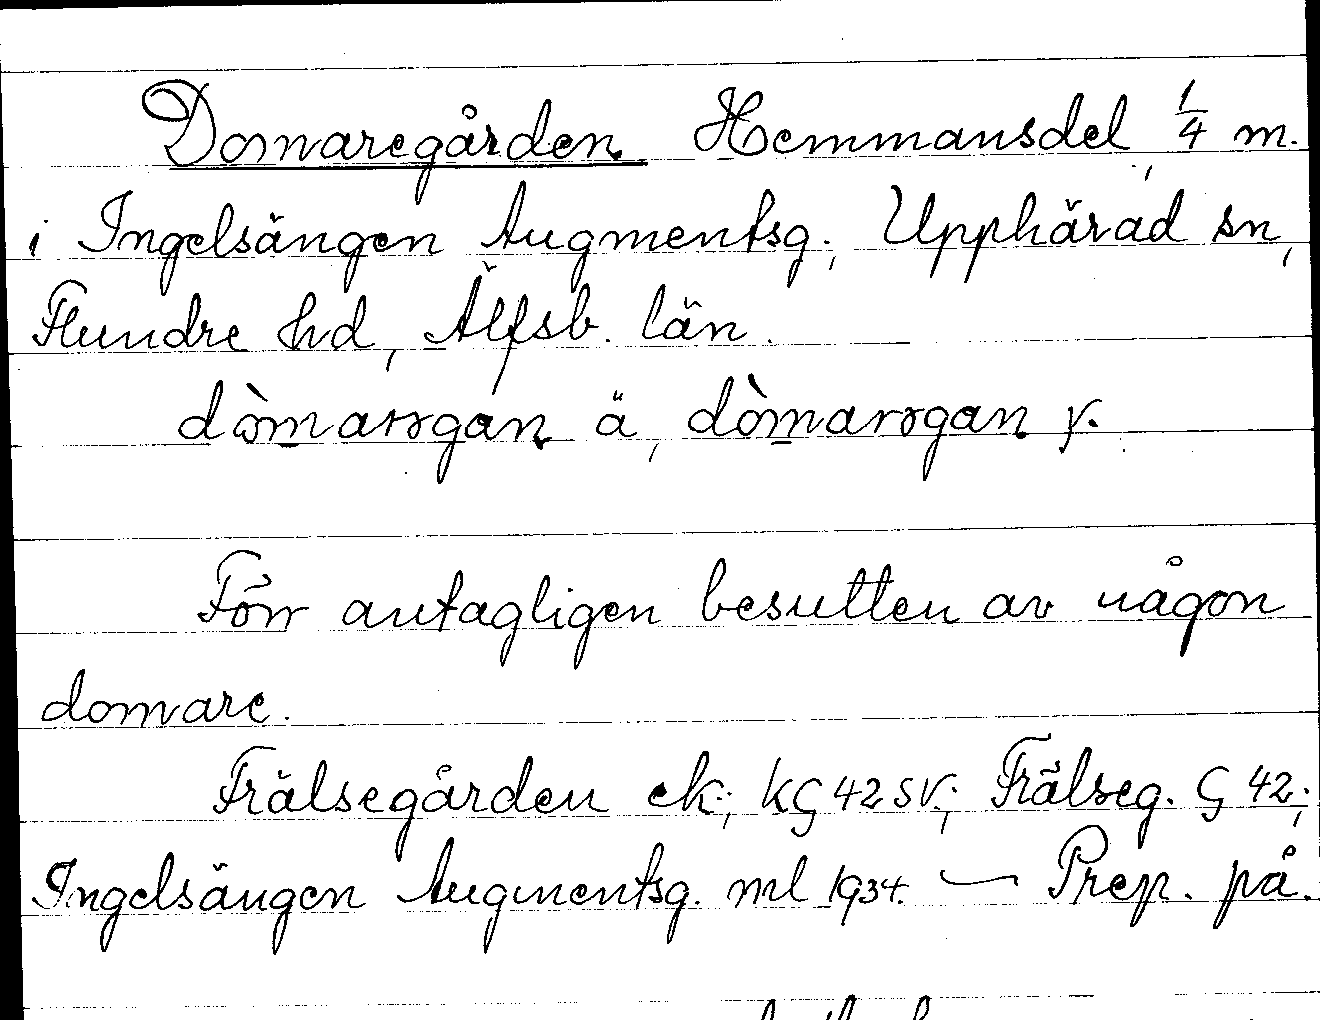 Domaregården Hemmansdel, 1/4 m.
i Ingelsängen Augmentsg., Upphärad sn,
Flundre hd, Älfsb. län.
dòmarrgan ä, dòmarrgan y.
Förr antagligen besutten av någon
domare.
Frälsegården ek.; kG 42 SV.; Frälseg. G 42.;
Ingelsängen Augmentsg. ml 1934. — Prep. på.